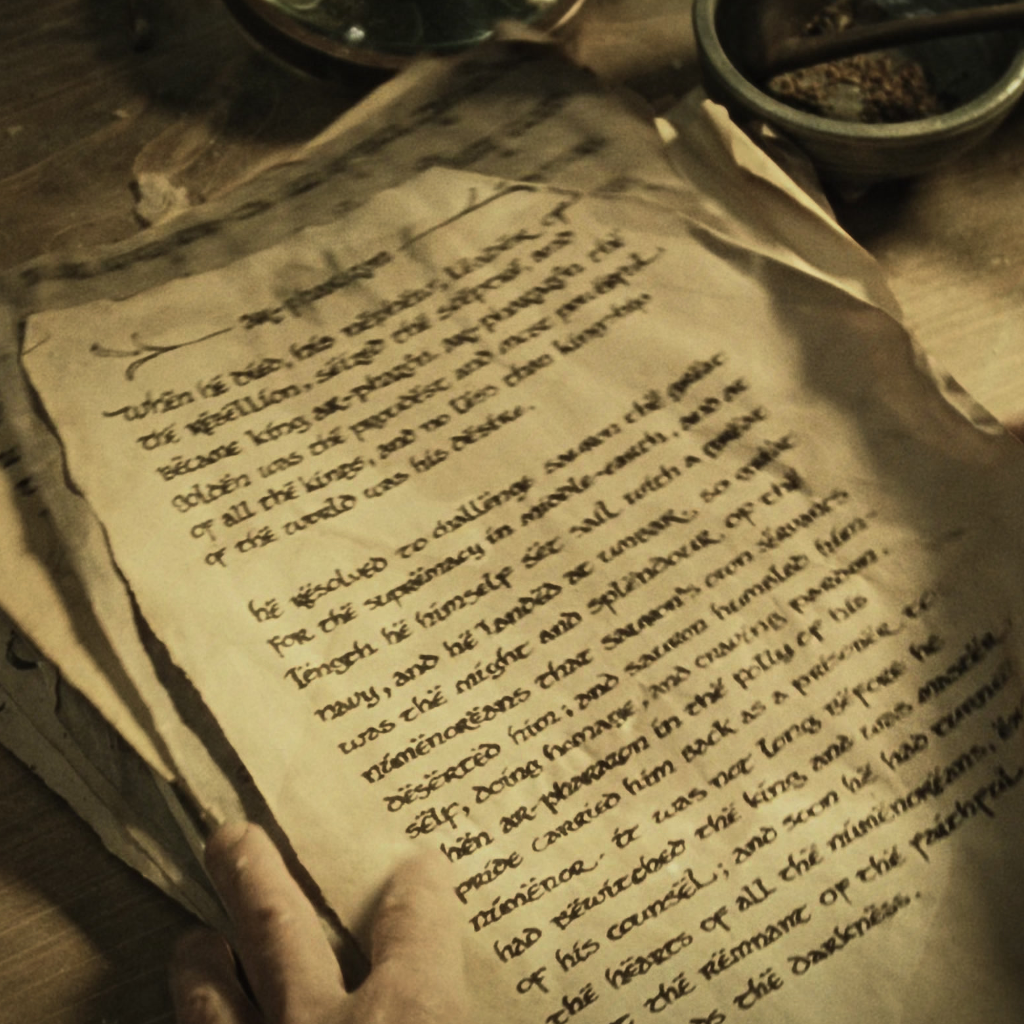 Ar-Pharazôn
When he died, his nephew, leader of
the rebellion, seized the sceptre, and
became King Ar-Pharazôn. Ar-Pharazôn the
Golden was the proudest and most powerful
of all the kings, and no less than kingship
of the world was his desire.
he resolved to challenge Sauron the great
for the supremacy in middle-earth, and at
length he himself set sail with a great
navy, and he landed at Umbar. So great
was the might and splendour of the
Númenóreans that Sauron's own servants
deserted him; and Sauron humbled him-
self, doing homage, and craving pardon.
hen Ar-Pharazôn in the folly of his
pride carried him back as a prisoner to
Númenor. It was not long before he
had bewitched the king and was master
of his counsel; and soon he had turned
the hearts of all the Númenóreans,
the remnant of the faithful
the darkness.